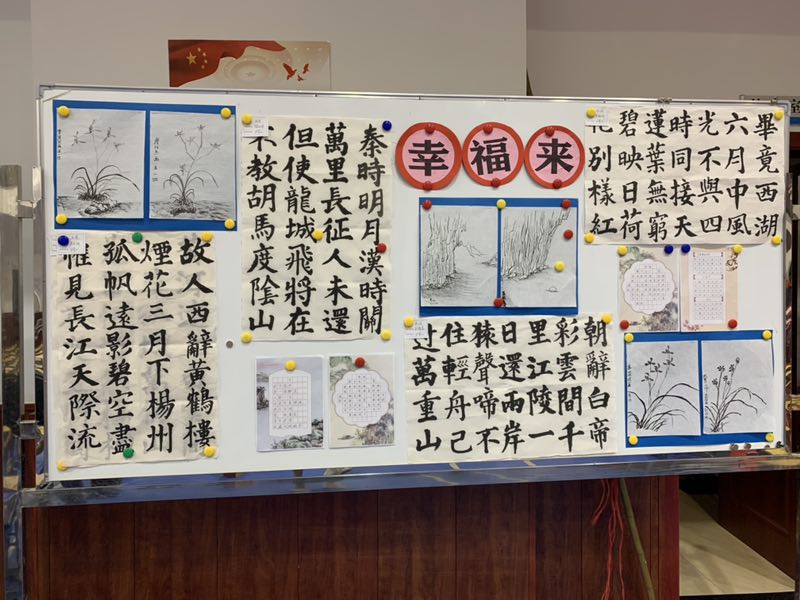 幸福来
秦時明月漢時關
萬里長征人未還
但使龍城飛將在
不教胡馬度陰山
畢竟西湖
六月中風
光不與四
時同接天
蓮葉無窮
碧映日荷
花別樣紅
故人西辭黃鶴樓
煙花三月下楊州
孤帆遠影碧空盡
惟見長江天際流
朝辭白帝
彩雲間千
里江陵一
日還兩岸
猿聲啼不
住輕舟己
過萬重山